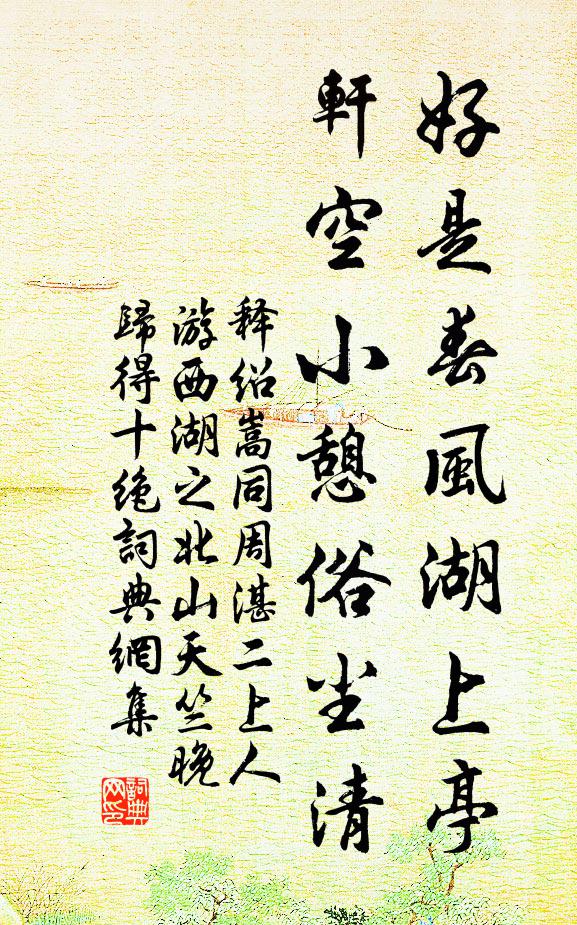 好是春風湖上亭
軒空小憩俗尘清
释紹嵩同周湛二上人
游西湖之北山天竺晚
歸得十絶詞典網集
詞典网印